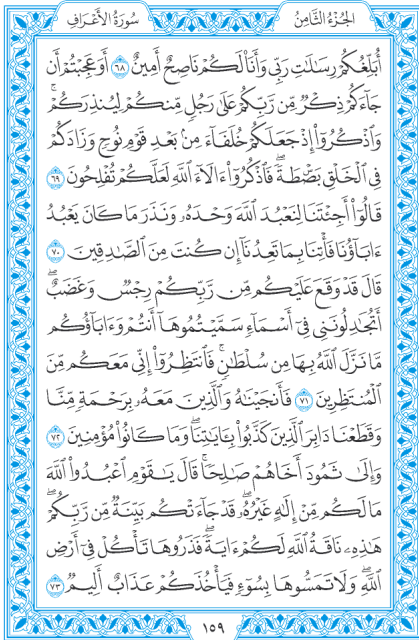 الجُزْءُ الثَّامِنُ
سُورَةُ الأَعْرَافِ
أُبَلِّغُكُمْ رِسَٰلَٰتِ رَبِّى وَأَنَا۠ لَكُمْ نَاصِحٌ أَمِينٌ ٦٨ أَوَعَجِبْتُمْ أَن
جَآءَكُمْ ذِكْرٌ مِّن رَّبِّكُمْ عَلَىٰ رَجُلٍ مِّنكُمْ لِيُنذِرَكُمْ ۚ
وَٱذْكُرُوٓا۟ إِذْ جَعَلَكُمْ خُلَفَآءَ مِنۢ بَعْدِ قَوْمِ نُوحٍ وَزَادَكُمْ
فِى ٱلْخَلْقِ بَصْۜطَةً ۖ فَٱذْكُرُوٓا۟ ءَالَآءَ ٱللَّهِ لَعَلَّكُمْ تُفْلِحُونَ ٦٩
قَالُوٓا۟ أَجِئْتَنَا لِنَعْبُدَ ٱللَّهَ وَحْدَهُۥ وَنَذَرَ مَا كَانَ يَعْبُدُ
ءَابَآؤُنَا فَأْتِنَا بِمَا تَعِدُنَآ إِن كُنتَ مِنَ ٱلصَّٰدِقِينَ ٧٠
قَالَ قَدْ وَقَعَ عَلَيْكُم مِّن رَّبِّكُمْ رِجْسٌ وَغَضَبٌ ۖ
أَتُجَٰدِلُونَنِى فِىٓ أَسْمَآءٍ سَمَّيْتُمُوهَآ أَنتُمْ وَءَابَآؤُكُم
مَّا نَزَّلَ ٱللَّهُ بِهَا مِن سُلْطَٰنٍ ۚ فَٱنتَظِرُوٓا۟ إِنِّى مَعَكُم مِّنَ
ٱلْمُنتَظِرِينَ ٧١ فَأَنجَيْنَٰهُ وَٱلَّذِينَ مَعَهُۥ بِرَحْمَةٍ مِّنَّا
وَقَطَعْنَا دَابِرَ ٱلَّذِينَ كَذَّبُوا۟ بِـَٔايَٰتِنَا ۖ وَمَا كَانُوا۟ مُؤْمِنِينَ ٧٢
وَإِلَىٰ ثَمُودَ أَخَاهُمْ صَٰلِحًا ۗ قَالَ يَٰقَوْمِ ٱعْبُدُوا۟ ٱللَّهَ
مَا لَكُم مِّنْ إِلَٰهٍ غَيْرُهُۥ ۖ قَدْ جَآءَتْكُم بَيِّنَةٌ مِّن رَّبِّكُمْ ۖ
هَٰذِهِۦ نَاقَةُ ٱللَّهِ لَكُمْ ءَايَةً ۖ فَذَرُوهَا تَأْكُلْ فِىٓ أَرْضِ
ٱللَّهِ ۖ وَلَا تَمَسُّوهَا بِسُوٓءٍ فَيَأْخُذَكُمْ عَذَابٌ أَلِيمٌ ٧٣
١٥٩